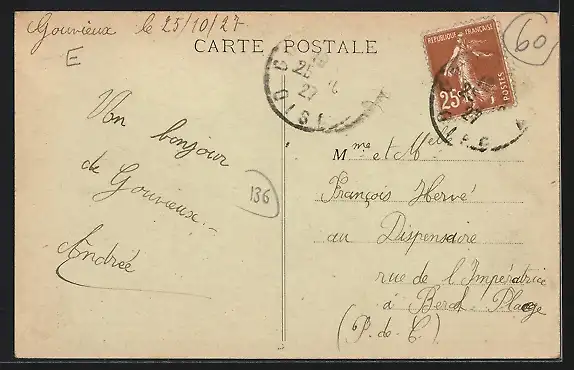 Gouvieux le 25/10/27
E
CARTE POSTALE
60
RÉPUBLIQUE FRANÇAISE
25c
POSTES
25
27
OISE
Un bonjour
de Gouvieux.
Andrée
136
Mme et Melle
François Hervé
au Dispensaire
rue de l'Impératrice
à Berck-Plage
(P.-de-C)